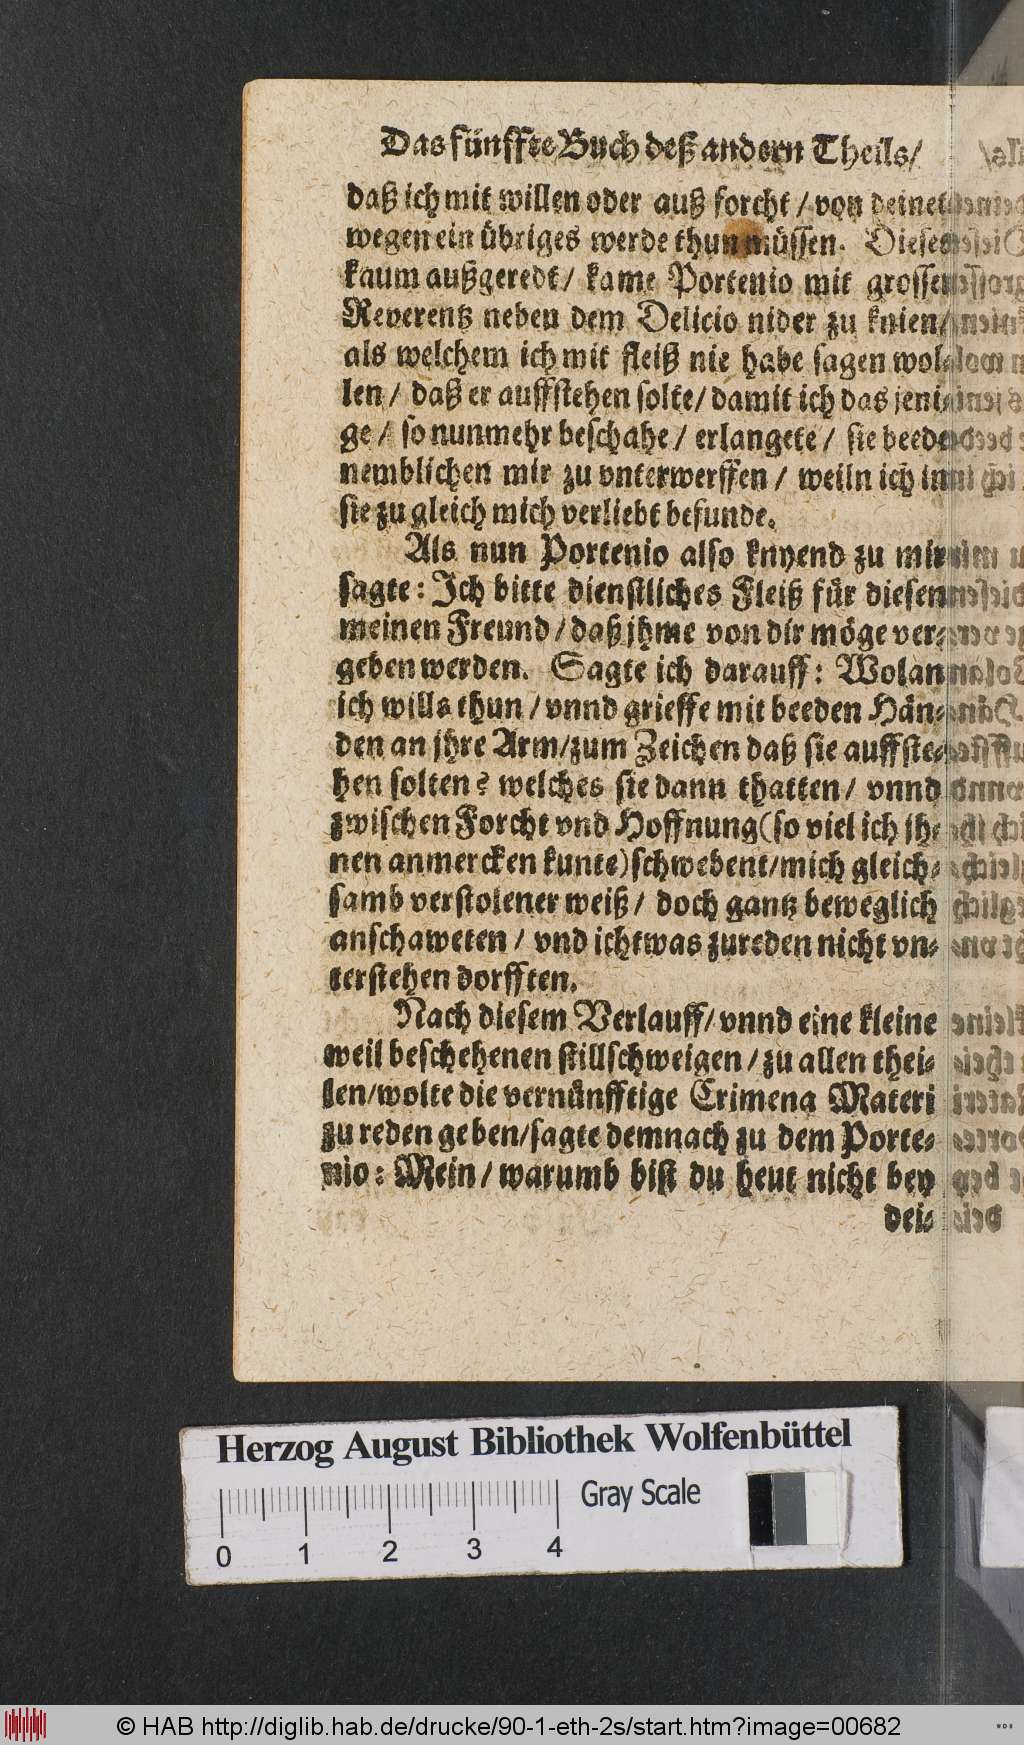 Das fünffte Buch deß andern Theils/
daß ich mit willen oder auß forcht / von deinet
wegen ein übriges werde thun müssen. Dieses
kaum außgeredt / kame Portenio mit grossen
Reverentz neben dem Delicio nider zu knien/
als welchem ich mit fleiß nie habe sagen wol-
len / daß er auffstehen solte / damit ich das jeni-
ge / so nunmehr beschahe / erlangete / sie beede
nemblichen mir zu vnterwerffen / weiln ich inn
sie zu gleich mich verliebt befunde.
Als nun Portenio also knyend zu mir
sagte: Ich bitte dienstliches Fleiß für diesen
meinen Freund / daß jhme von dir möge ver-
geben werden. Sagte ich darauff: Wolan
ich wills thun / vnnd grieffe mit beeden Hän-
den an jhre Arm/zum Zeichen daß sie auffste-
hen solten? welches sie dann thatten / vnnd
zwischen Forcht vnd Hoffnung (so viel ich jh-
nen anmercken kunte) schwebent/mich gleich-
samb verstolener weiß / doch gantz beweglich
anschaweten / vnd ichtwas zureden nicht vn-
terstehen dorfften.
Nach diesem Verlauff/ vnnd eine kleine
weil beschehenen stillschweigen / zu allen thei-
len/wolte die vernünfftige Crimena Materi
zu reden geben/sagte demnach zu dem Porte-
nio: Mein / warumb bist du heut nicht bey
dei-
Herzog August Bibliothek Wolfenbüttel
Gray Scale
0 1 2 3 4
© HAB http://diglib.hab.de/drucke/90-1-eth-2s/start.htm?image=00682